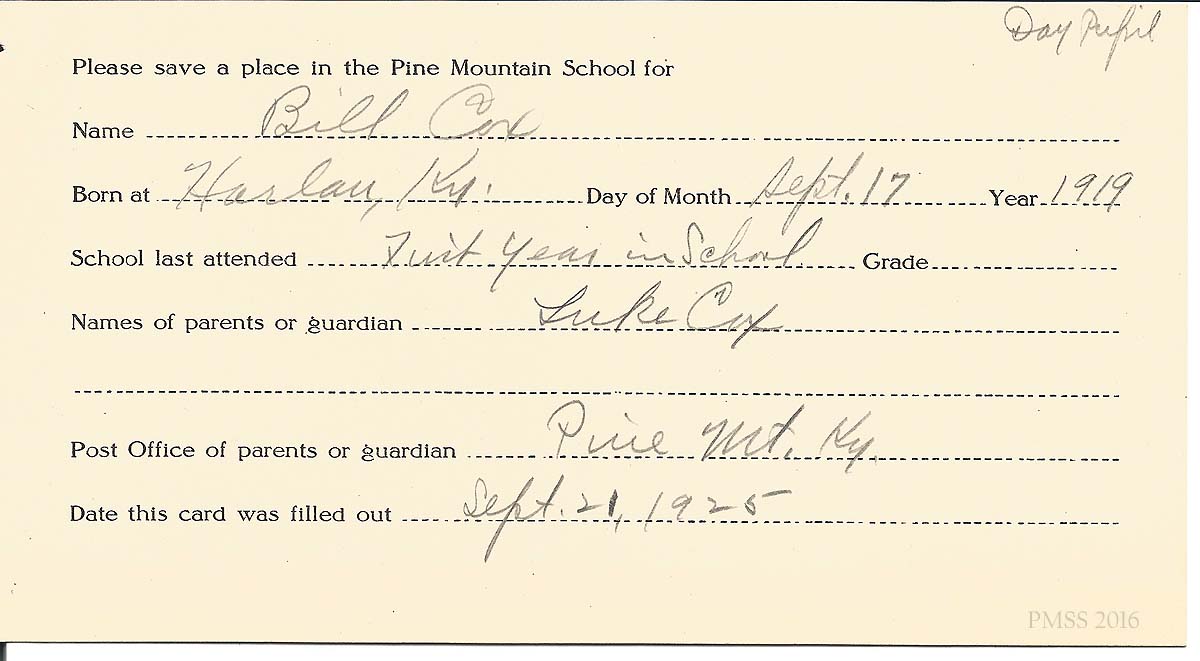 Day Pupil
Please save a place in the Pine Mountain School for
Name Bill Cox
Born at Harlan, Ky. Day of Month Sept. 17 Year 1919
School last attended First Year in School Grade
Names of parents or guardian Luke Cox
Post Office of parents or guardian Pine Mt. Ky.
Date this card was filled out Sept. 21, 1925
PMSS 2016